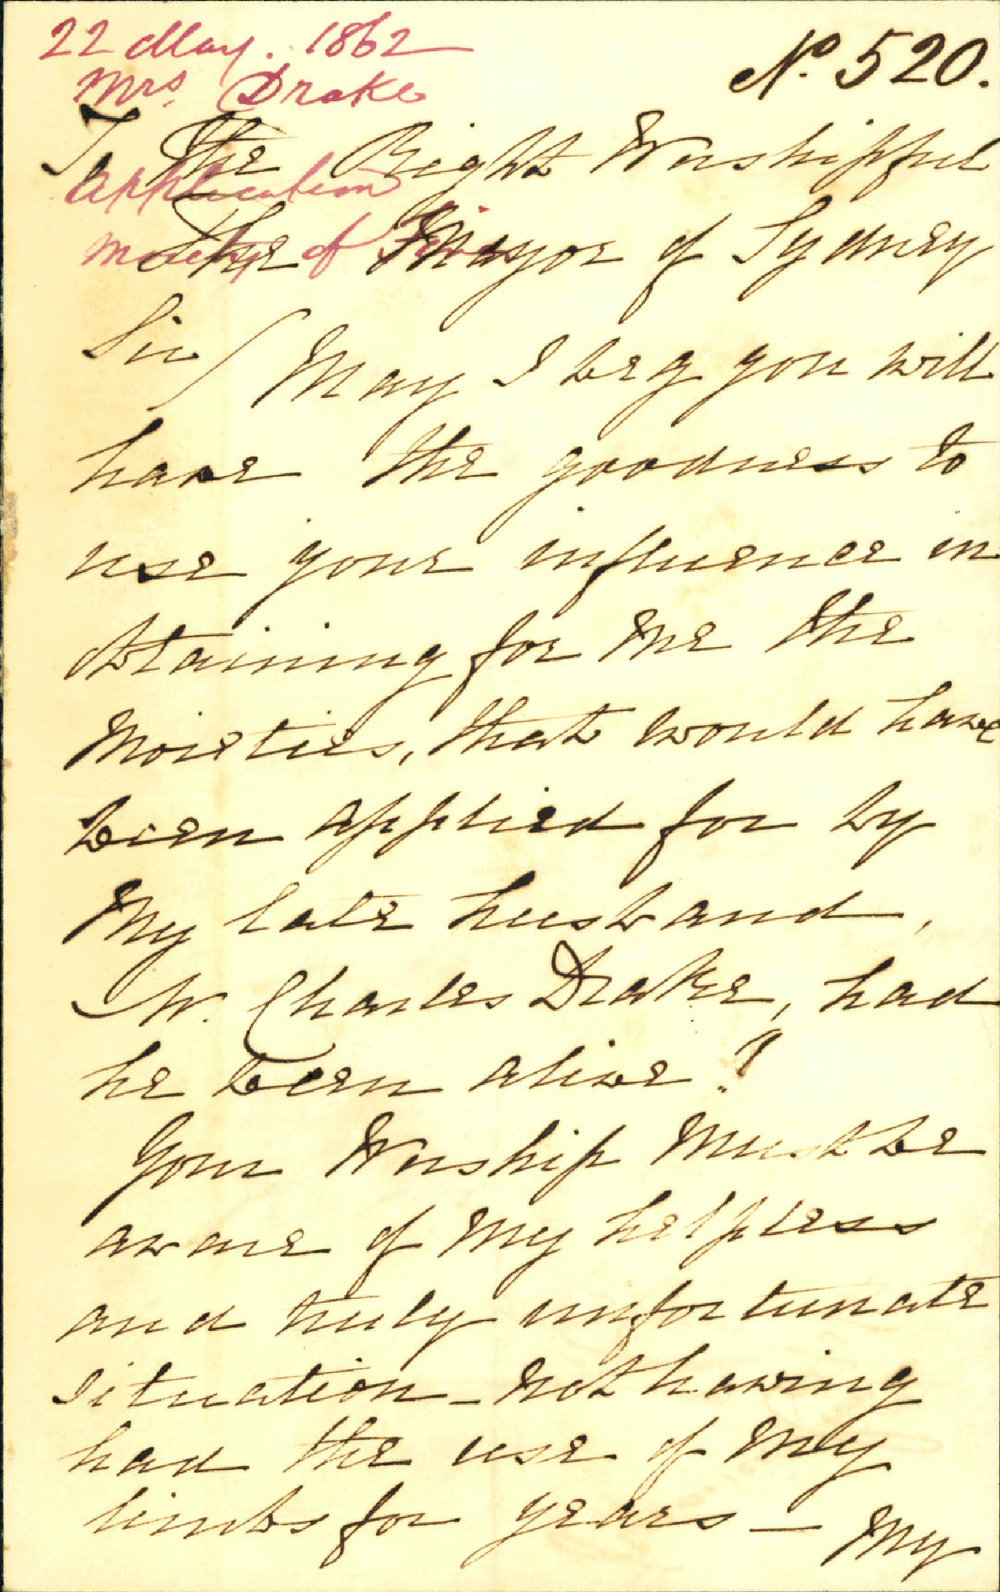 22 May. 1862
Mrs. Drake
No. 520.
To The Right Worshipful
Application
The Mayor of Sydney
moiety of Fines
Sir/ May I beg you will
have the goodness to
use your influence in
obtaining for me the
Moieties, that would have
been applied for by
My late husband,
Mr. Charles Drake, had
he been alive?
Your Worship Must be
aware of My helpless
and truly unfortunate
situation - not having
had the use of My
limbs for years — My